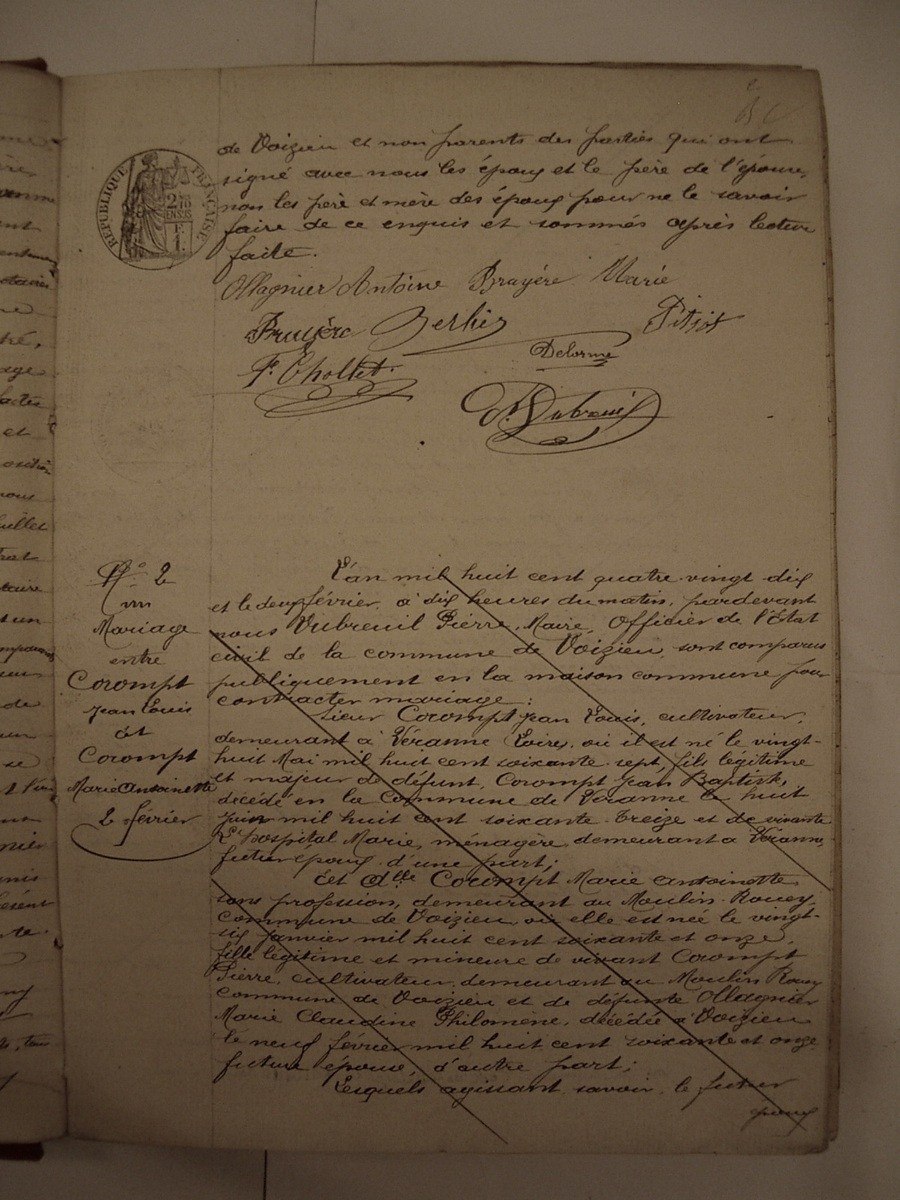 de Voizieu et non parents des parties qui ont
signé avec nous les époux et le père de l'épouse,
non les père et mère des époux pour ne le savoir
faire de ce enquis et sommés après lecture
faite.
RÉPUBLIQUE FRANÇAISE
2/10 EN SUS
1 F.
Ollagnier Antoine Bruyère Marie
Bruyère
Pitiot
Delorme
F. Chollet
Dubreuil
N.º 2
un
Mariage
entre
Corompt
Jean Louis
et
Corompt
Marie Antoinette
2 février
L'an mil huit cent quatre-vingt-dix
et le deux février, à dix heures du matin, pardevant
nous Dubreuil Pierre, Maire, Officier de l'État
civil de la commune de Voizieu, sont comparus
publiquement en la maison commune pour
contracter mariage:
Sieur Corompt Jean Louis, cultivateur,
demeurant à Véranne Loire, où il est né le vingt-
huit Mai mil huit cent soixante-sept, fils légitime
et majeur de défunt, Corompt Jean Baptiste,
décédé en la Commune de Véranne le huit
juin mil huit cent soixante-treize et de vivante
L'hospital Marie, ménagère, demeurant à Véranne,
futur époux d'une part;
Et dlle Corompt Marie Antoinette
sans profession, demeurant au Moulin-Rouey,
commune de Voizieu, où elle est née le vingt-
six janvier mil huit cent soixante et onze,
fille légitime et mineure de vivant Corompt
Pierre, cultivateur, demeurant au Moulin Rouey
commune de Voizieu et de défunte Ollagnier
Marie Claudine Philomène, décédée à Voizieu
le neuf février mil huit cent soixante et onze
future épouse, d'autre part;
Lesquels agissant, savoir, le futur
époux